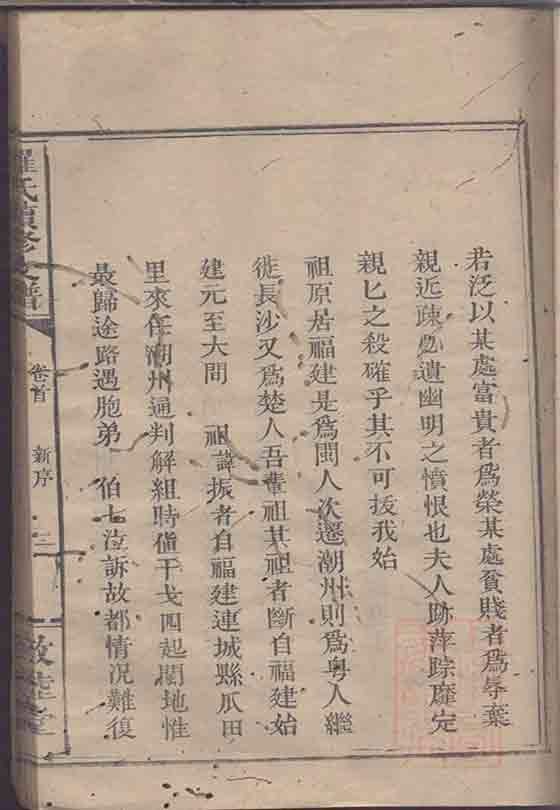 若泛以某處富貴者爲榮某處貧賤者爲辱棄
親近疎必遺幽明之憤恨也夫人跡萍踪靡定
親匕之殺確乎其不可拔我始
祖原居福建是爲閩人次遷潮州則爲粵人繼
徙長沙又爲楚人吾輩祖其祖者斷自福建始
建元至大間 祖諱振者自福建連城縣瓜田
里來任潮州通判解組時值干戈四起闔地惟
最歸途路遇胞弟 伯七泣訴故都情况難復
氏續修族譜
卷首 新序
三
敦睦堂